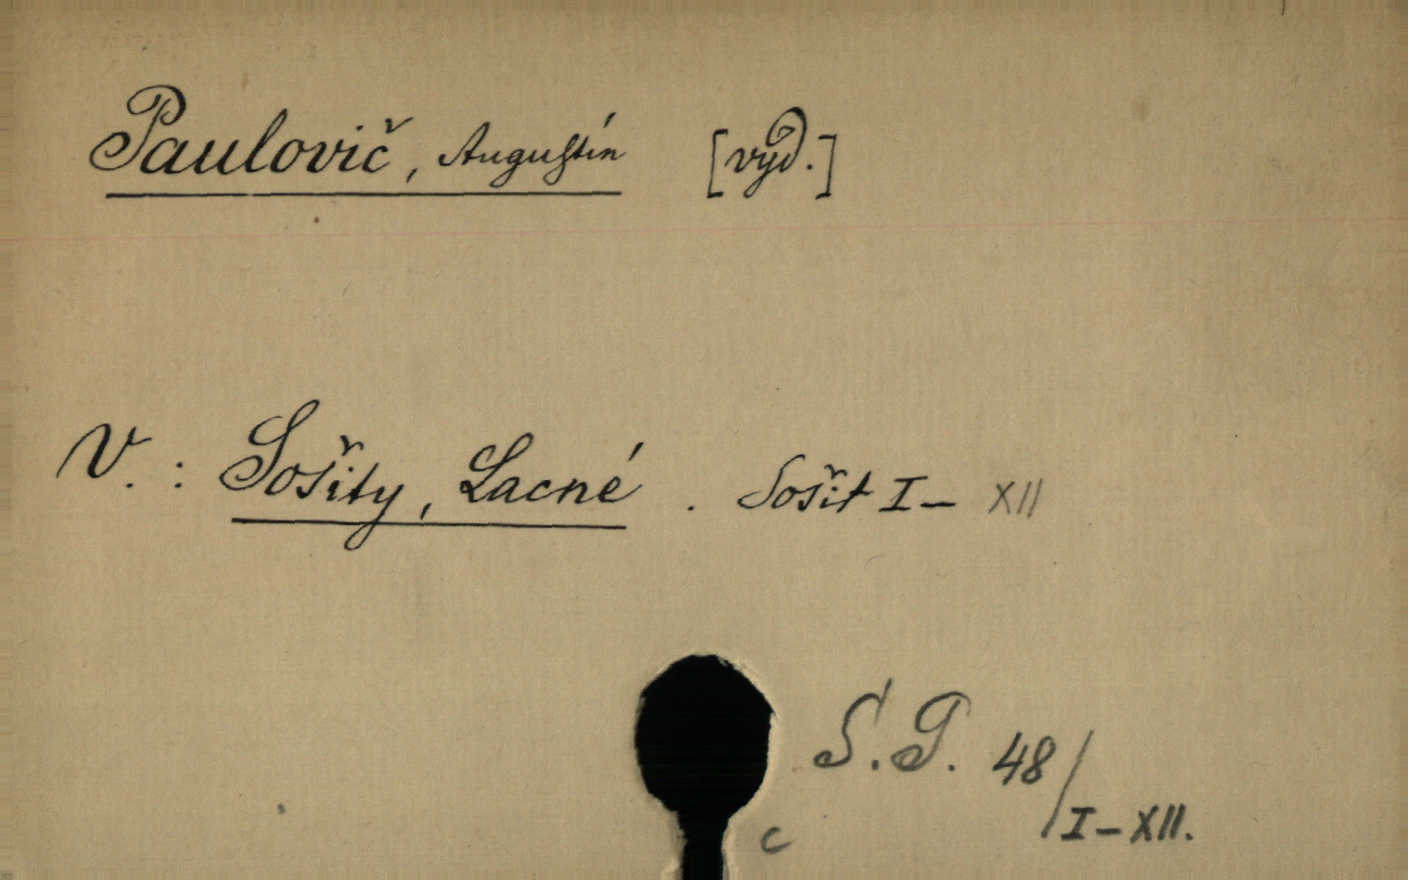 Paulovič, Augustín [vyd.]
V. : Sošity, Lacné. Sošit I - XII
S. P. 48/I-XII.
c